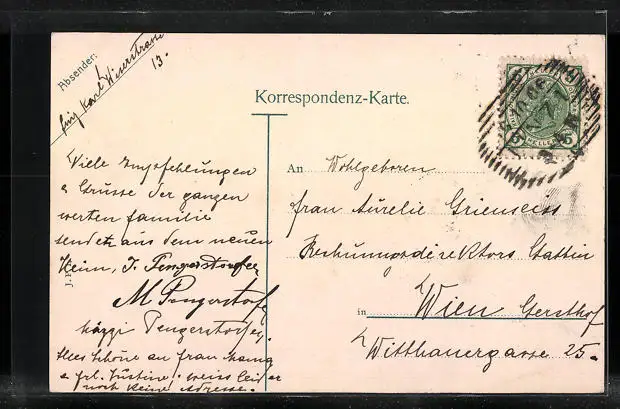 Absender:
Linz Karl Wiserstrasse
13.
Korrespondenz-Karte.
5 HELLER 5
Viele Empfehlungen
& Grüsse der ganzen
werten Familie
sendet aus dem neuen
Heim, J. Pengerstorfer
M Pengerstorfer
Pengerstorfer,
Alles Schöne an Frau
& Frl. Justine. weiss leider
noch keine Adresse.
An Wohlgeboren
Frau Aurelie
Rechnungsdirektors Gattin
in Wien Gersthof
Witthauergasse 25.